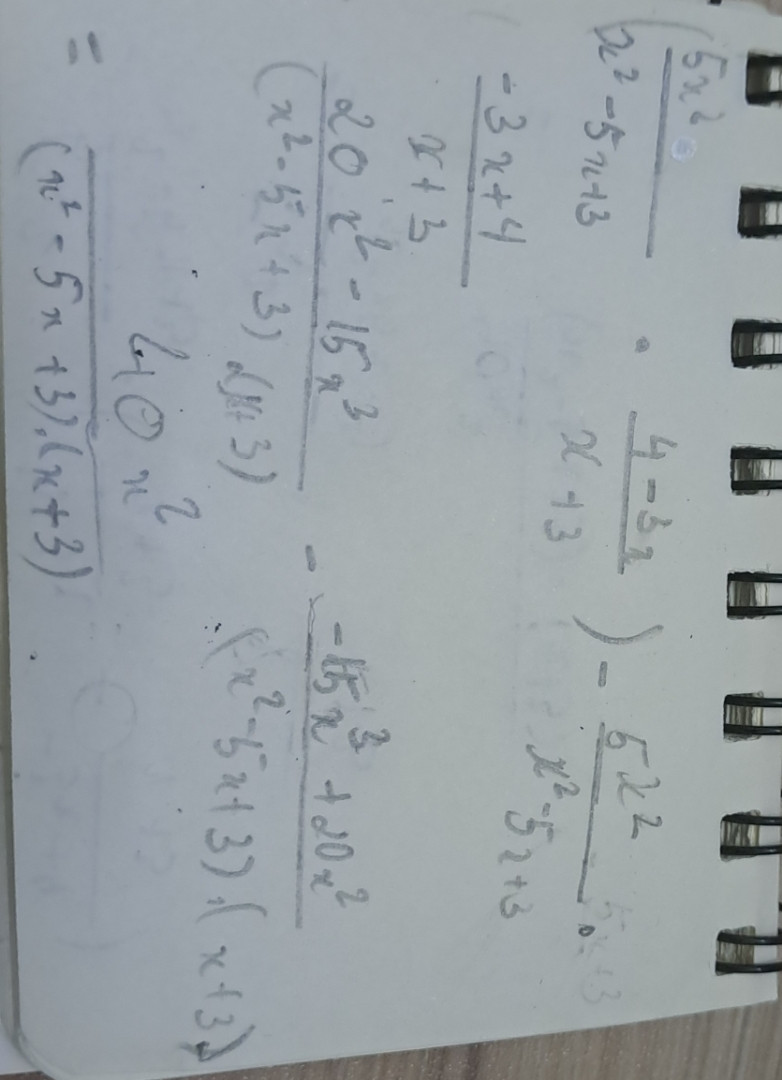 (5x²/(x² - 5x + 3) · (4 - 3x)/(x + 3)) - 5x²/(x² - 5x + 3) ·
(-3x + 4)/(x + 3)
(20x² - 15x³)/((x² - 5x + 3) · (x + 3)) - (-15x³ + 20x²)/((x² - 5x + 3) · (x + 3))
= 40x²/((x² - 5x + 3) · (x + 3))